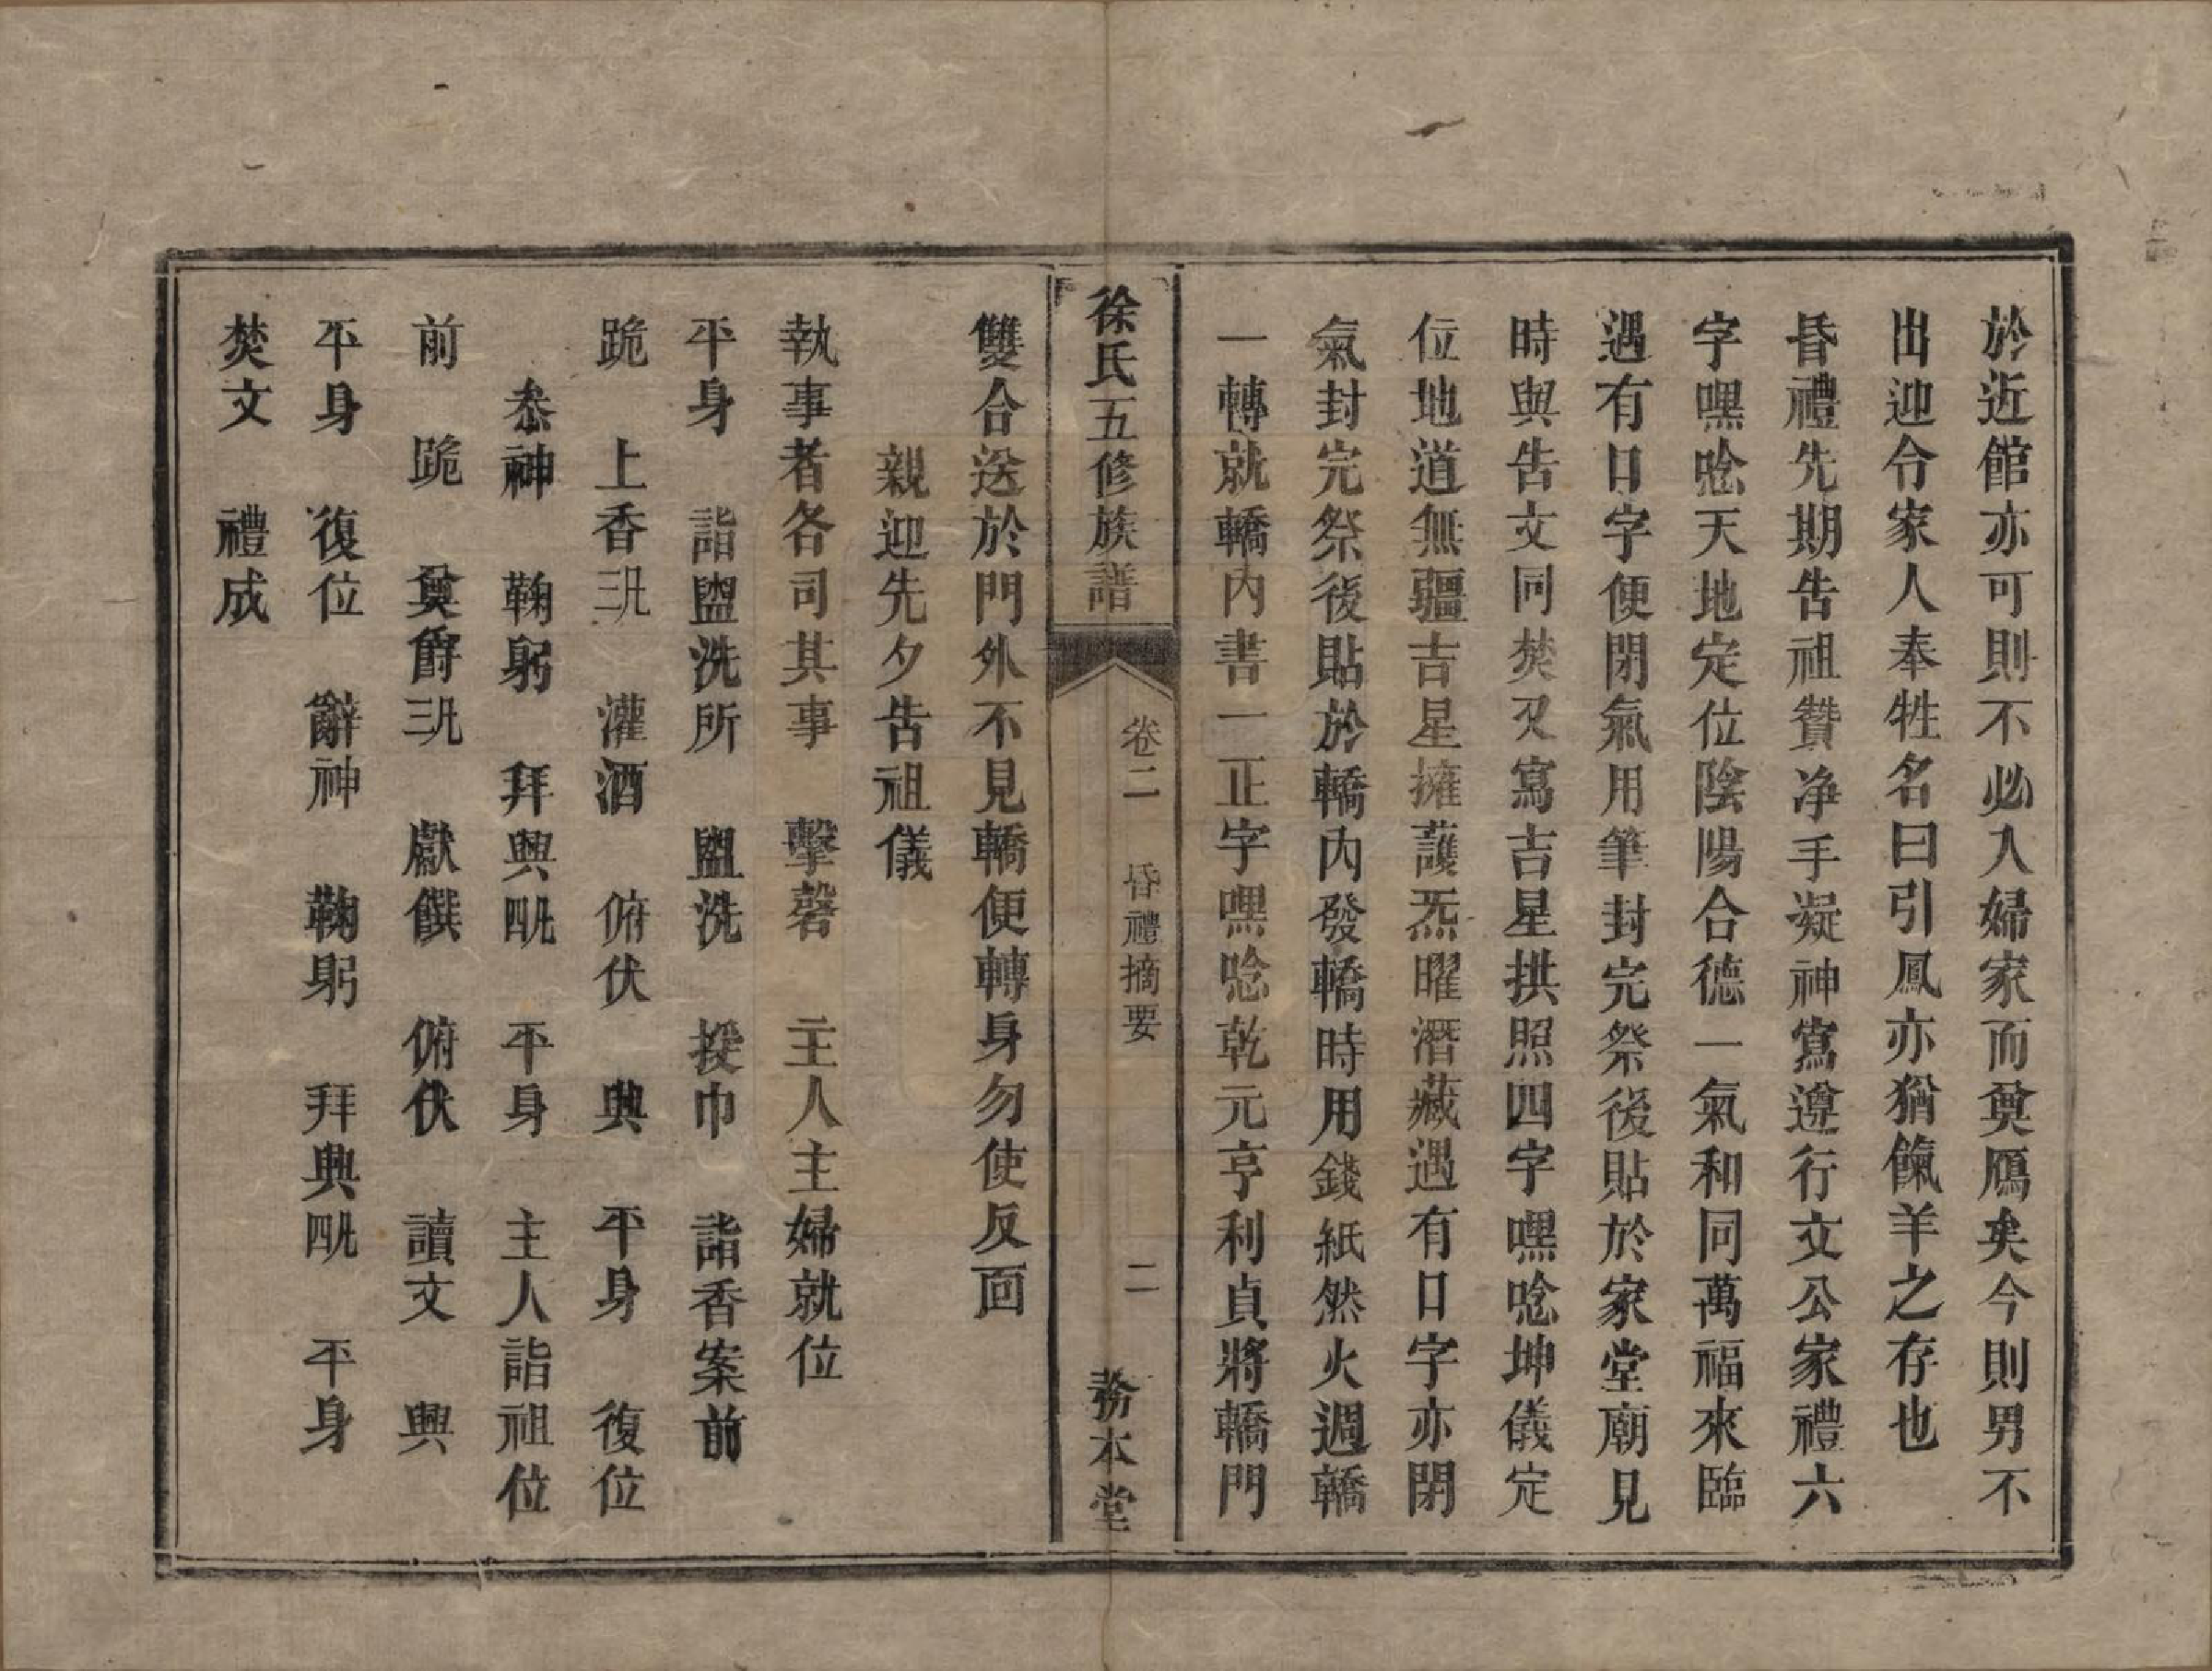 於近館亦可則不必入婦家而奠鴈矣今則男不
出迎令家人奉牲名曰引鳳亦猶餼羊之存也
昏禮先期告祖贊净手凝神寫遵行文公家禮六
字嘿唸天地定位陰陽合德一氣和同萬福來臨
遇有口字便閉氣用筆封完祭後貼於家堂廟見
時與告文同焚又寫吉星拱照四字嘿唸坤儀定
位地道無疆吉星擁護炁曜潛藏遇有口字亦閉
氣封完祭後貼於轎內發轎時用錢紙然火週轎
一轉就轎內書一正字嘿唸乾元亨利貞將轎門
徐氏五修族譜 卷二 昏禮摘要 二 務本堂
雙合送於門外不見轎便轉身勿使反面
親迎先夕告祖儀
執事者各司其事 擊磬 主人主婦就位
平身 詣盥洗所 盥洗 授巾 詣香案前
跪 上香三卂 灌酒 俯伏 興 平身 復位
叅神 鞠躬 拜興四卂 平身 主人詣祖位
前 跪 奠爵三卂 獻饌 俯伏 讀文 興
平身 復位 辭神 鞠躬 拜興四卂 平身
焚文 禮成